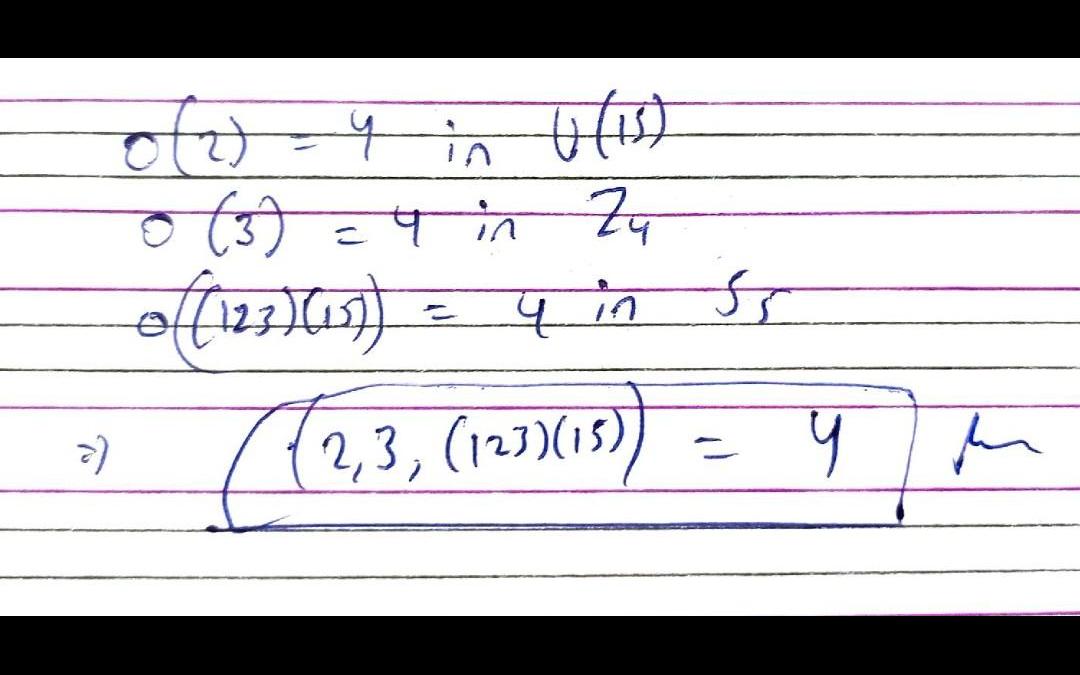 o(2) = 4 in U(15)
o (3) = 4 in Z4
o((123)(15)) = 4 in S5
=) (2,3, (123)(15)) = 4